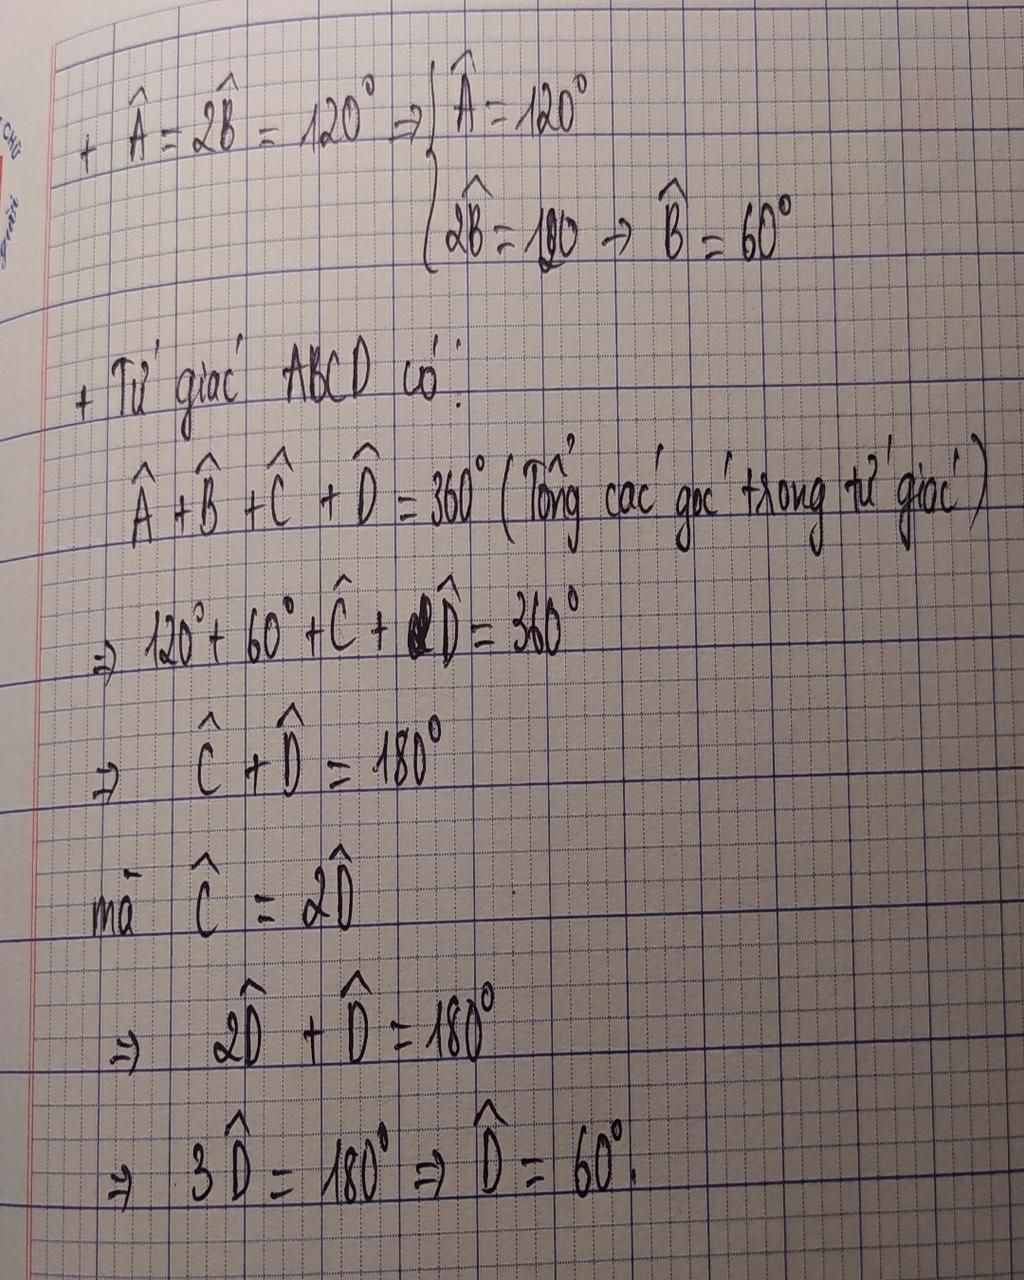 CHỮ
+ Â = 2B̂ = 120° ⇒ { Â = 120°
2B̂ = 120 → B̂ = 60°
+ Tứ giác ABCD có:
Â + B̂ + Ĉ + D̂ = 360° (Tổng các góc trong tứ giác)
⇒ 120° + 60° + Ĉ + D̂ = 360°
⇒ Ĉ + D̂ = 180°
mà Ĉ = 2D̂
⇒ 2D̂ + D̂ = 180°
⇒ 3D̂ = 180° ⇒ D̂ = 60°.